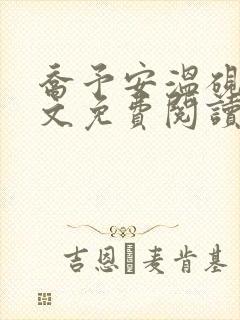 喬予安溫硯
文免費閱讀
吉恩麥肯基